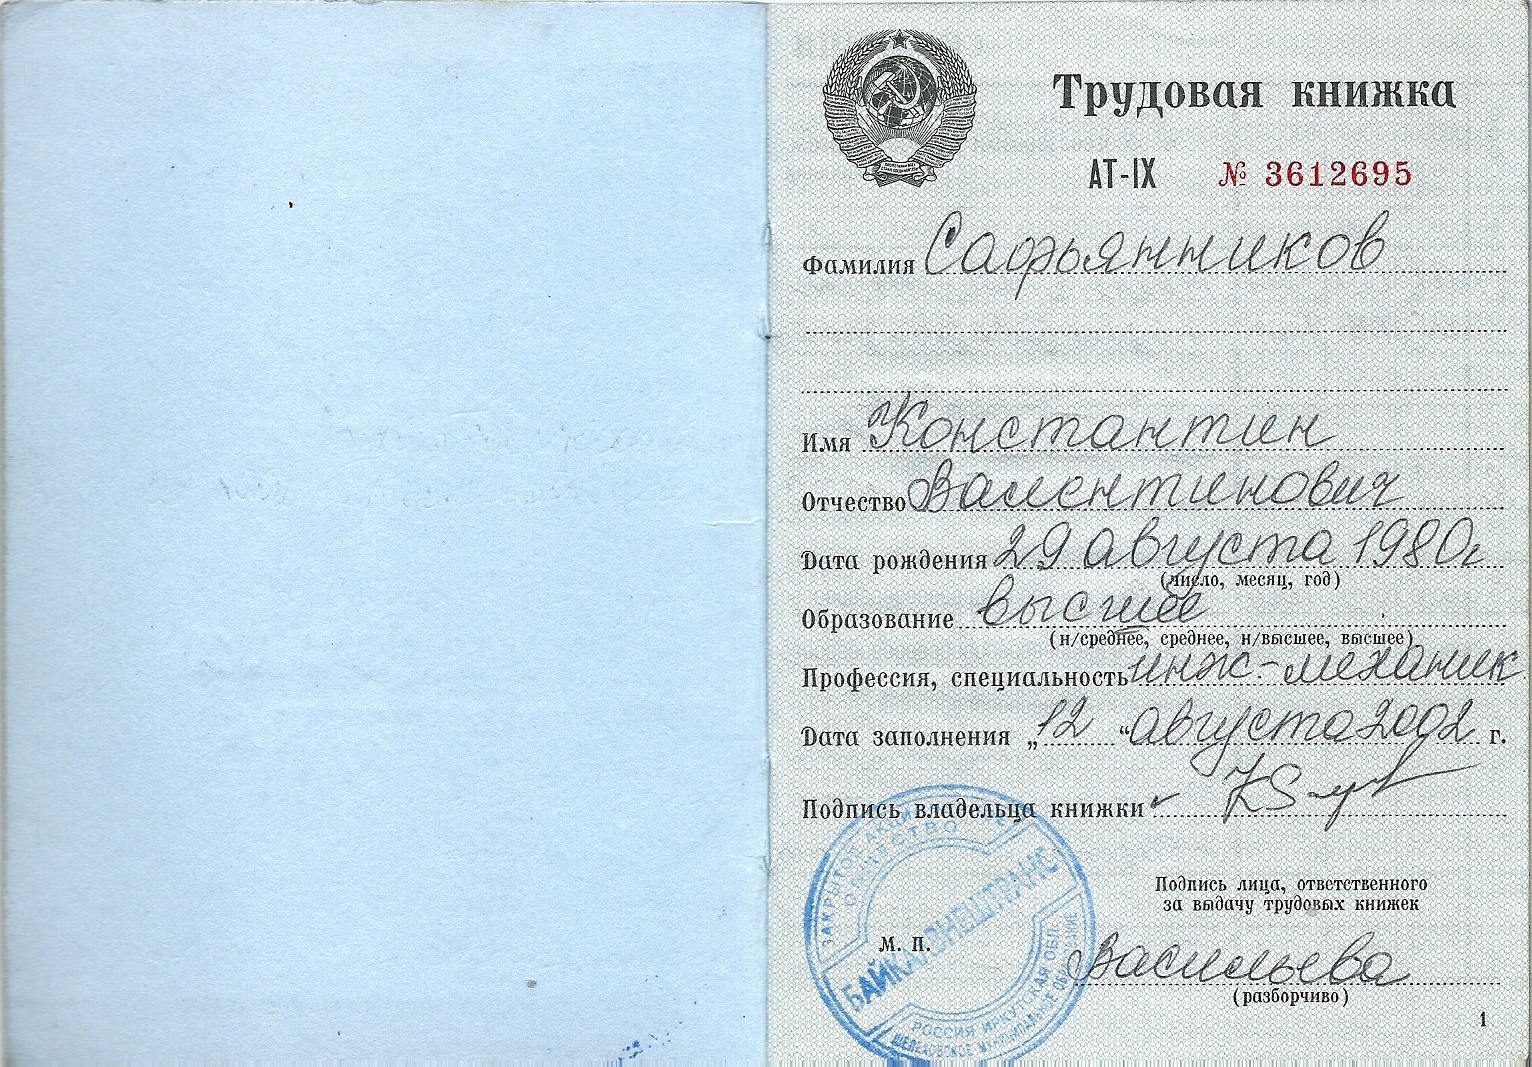 Трудовая книжка
АТ-IX № 3612695
Фамилия Сафьянников
Имя Константин
Отчество Валентинович
Дата рождения 29 августа 1980г
(число, месяц, год)
Образование высшее
(н/среднее, среднее, н/высшее, высшее)
Профессия, специальность инж-механик
Дата заполнения „12“ августа 2002 г.
Подпись владельца книжки
Подпись лица, ответственного
за выдачу трудовых книжек
М. П.
Васильева
(разборчиво)
ЗАКРЫТОЕ
ОБЩЕСТВО
БАЙКАЛВНЕШТРАНС
РОССИЯ ИРКУТСКАЯ ОБЛ.
ШЕЛЕХОВСКОЕ МУНИЦИПАЛЬНОЕ ОБРАЗОВАНИЕ
1